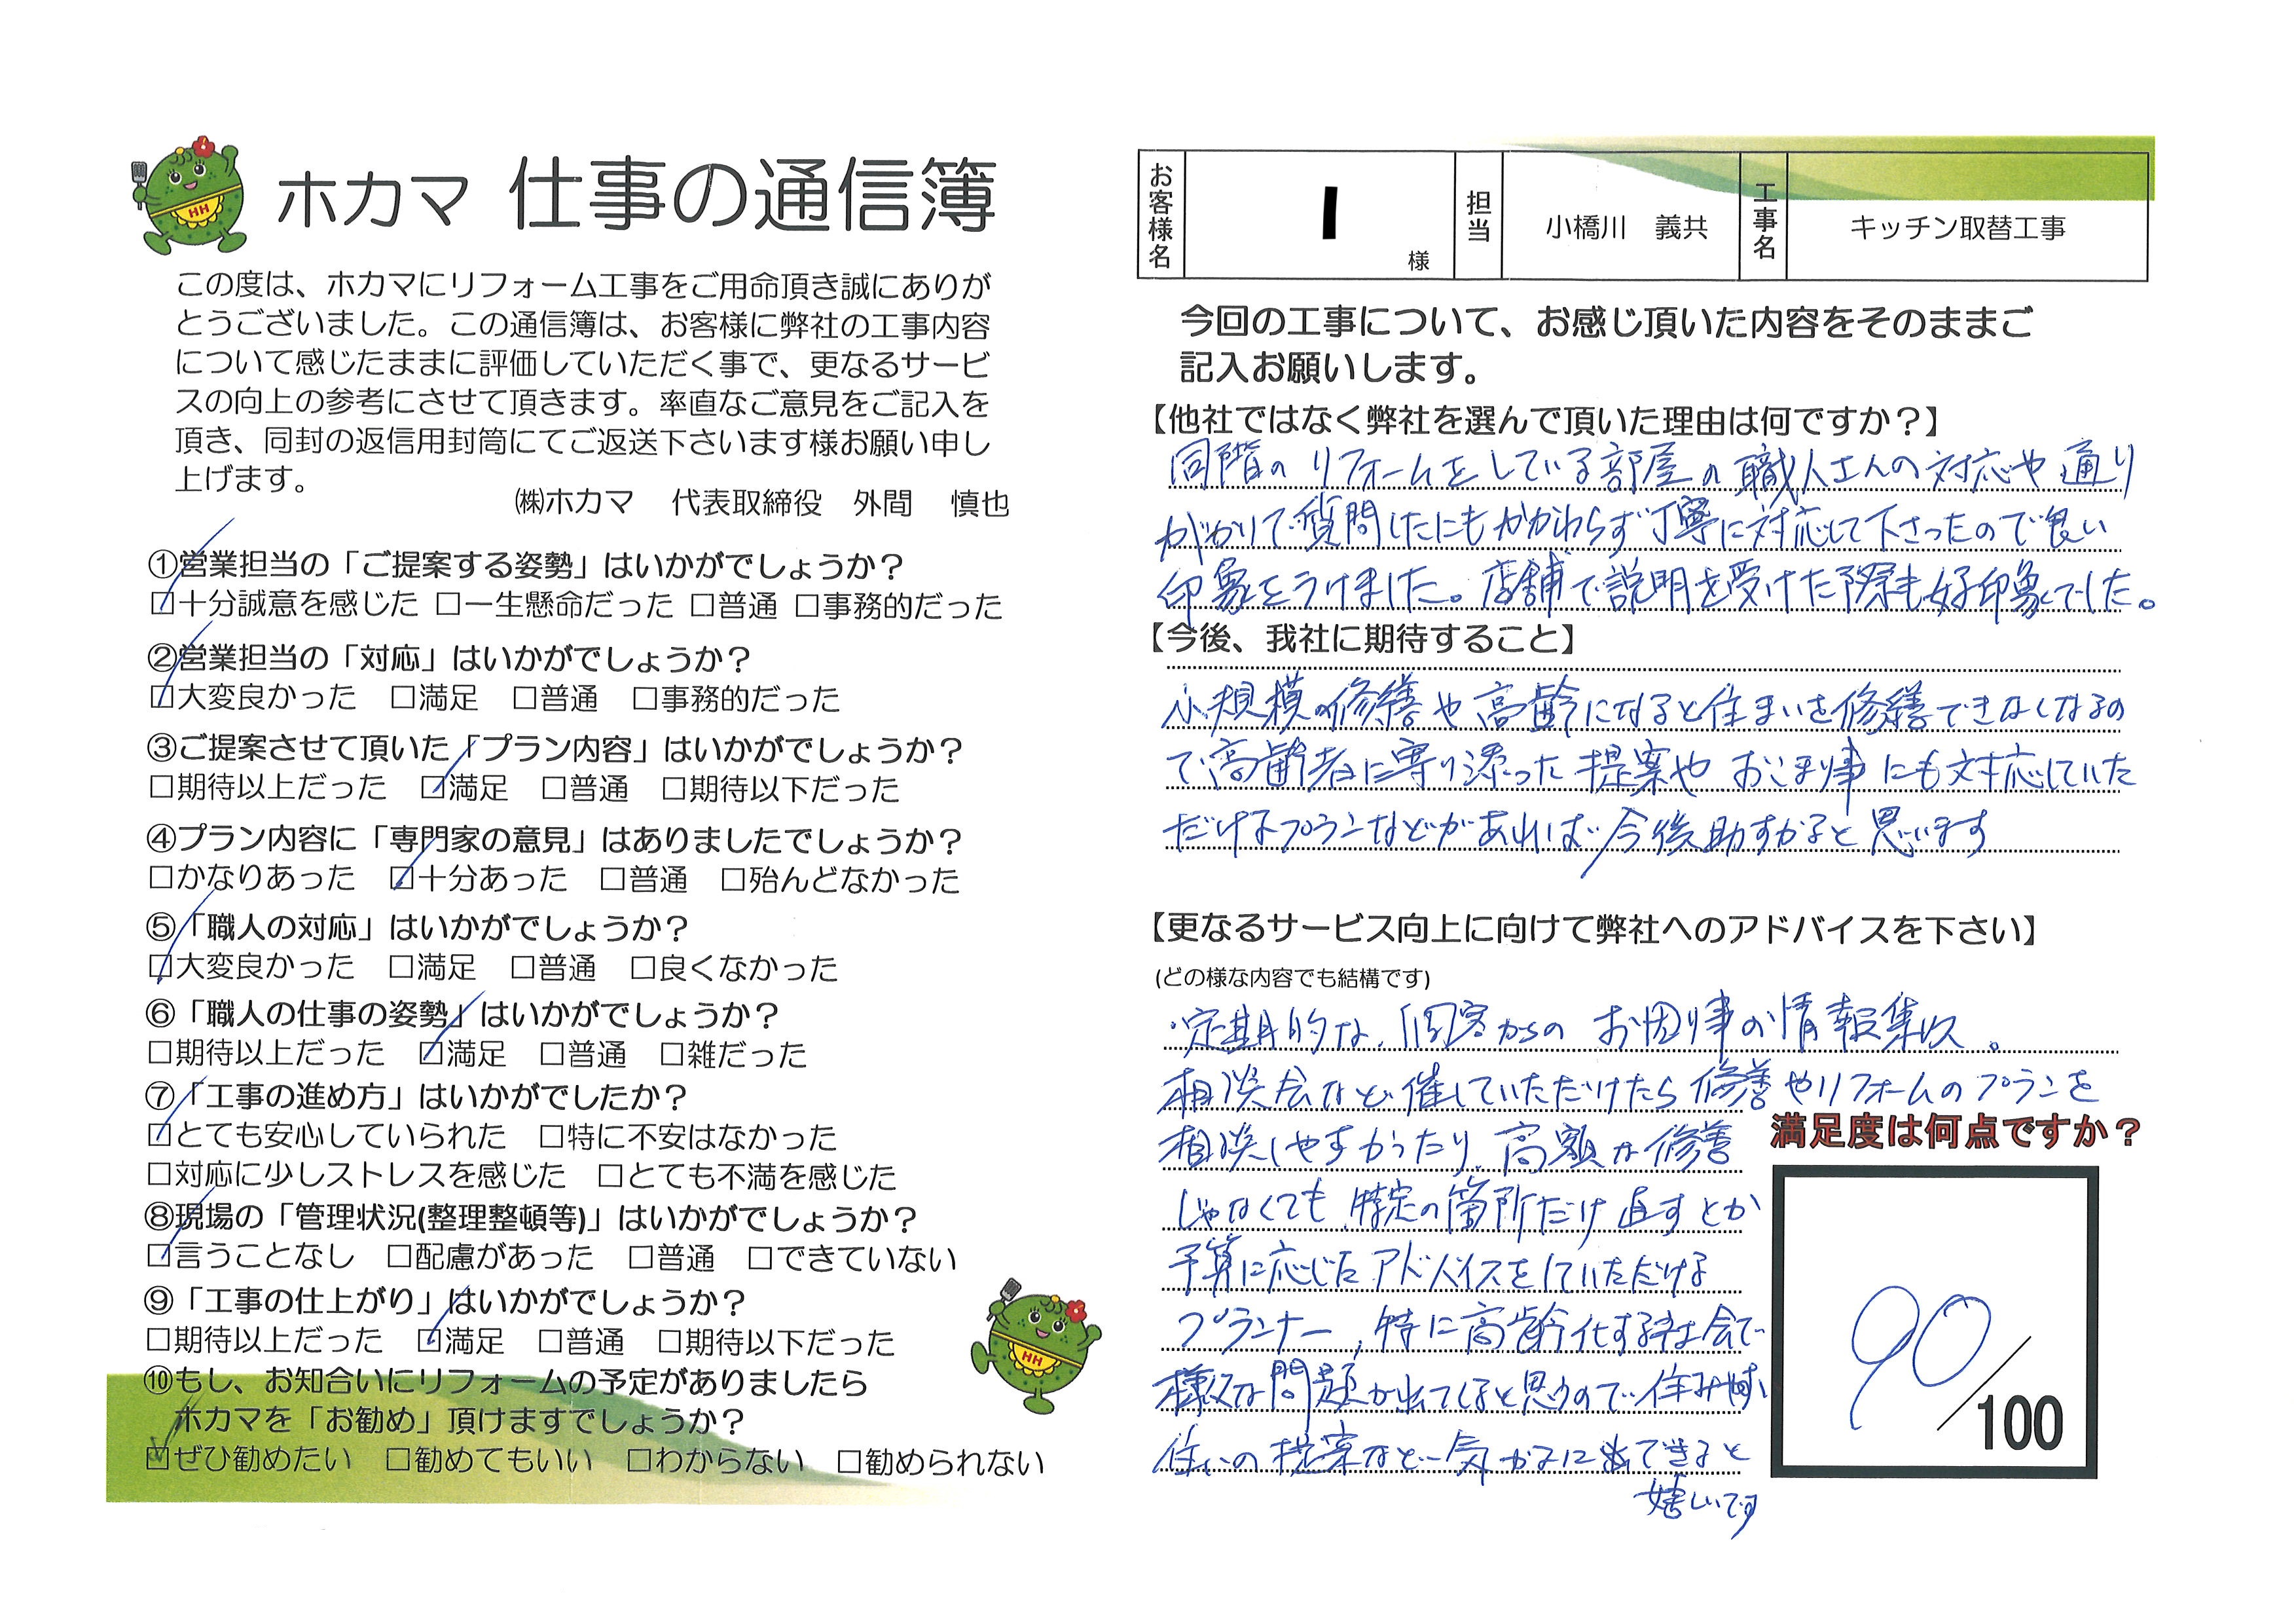 ホカマ 仕事の通信簿
この度は、ホカマにリフォーム工事をご用命頂き誠にありが
とうございました。この通信簿は、お客様に弊社の工事内容
について感じたままに評価していただく事で、更なるサービ
スの向上の参考にさせて頂きます。率直なご意見をご記入を
頂き、同封の返信用封筒にてご返送下さいます様お願い申し
上げます。
㈱ホカマ 代表取締役 外間 慎也
①営業担当の「ご提案する姿勢」はいかがでしょうか？
☑十分誠意を感じた □一生懸命だった □普通 □事務的だった
②営業担当の「対応」はいかがでしょうか？
☑大変良かった □満足 □普通 □事務的だった
③ご提案させて頂いた「プラン内容」はいかがでしょうか？
□期待以上だった ☑満足 □普通 □期待以下だった
④プラン内容に「専門家の意見」はありましたでしょうか？
□かなりあった ☑十分あった □普通 □殆んどなかった
⑤「職人の対応」はいかがでしょうか？
☑大変良かった □満足 □普通 □良くなかった
⑥「職人の仕事の姿勢」はいかがでしょうか？
□期待以上だった ☑満足 □普通 □雑だった
⑦「工事の進め方」はいかがでしたか？
☑とても安心していられた □特に不安はなかった
□対応に少しストレスを感じた □とても不満を感じた
⑧現場の「管理状況(整理整頓等)」はいかがでしょうか？
☑言うことなし □配慮があった □普通 □できていない
⑨「工事の仕上がり」はいかがでしょうか？
□期待以上だった ☑満足 □普通 □期待以下だった
⑩もし、お知合いにリフォームの予定がありましたら
ホカマを「お勧め」頂けますでしょうか？
☑ぜひ勧めたい □勧めてもいい □わからない □勧められない
お客様名 I 様 担当 小橋川 義共 工事名 キッチン取替工事
今回の工事について、お感じ頂いた内容をそのままご
記入お願いします。
【他社ではなく弊社を選んで頂いた理由は何ですか？】
同階のリフォームをしている部屋の職人さんの対応や通り
がかりで質問したにもかかわらず丁寧に対応して下さったので良い
印象をうけました。店舗で説明を受けた際も好印象でした。
【今後、我社に期待すること】
小規模の修繕や高齢になると住まいを修繕できなくなるの
で高齢者に寄り添った提案やおこまり事にも対応していた
だけるプランなどがあれば今後助すかると思います
【更なるサービス向上に向けて弊社へのアドバイスを下さい】
(どの様な内容でも結構です)
・定期的な、顧客からのお困り事の情報集収。
相談会など催していただけたら修善やリフォームのプランを
相談しやすかったり、高額な修善
じゃなくても特定の箇所だけ直すとか
予算に応じたアドバイスをしていただける
プランナー，特に高齢化する社会で
様々な問題が出てくると思うので住みやすい
住いの提案など気がるに出できると
嬉しいです
満足度は何点ですか？
90/100
HH
HH